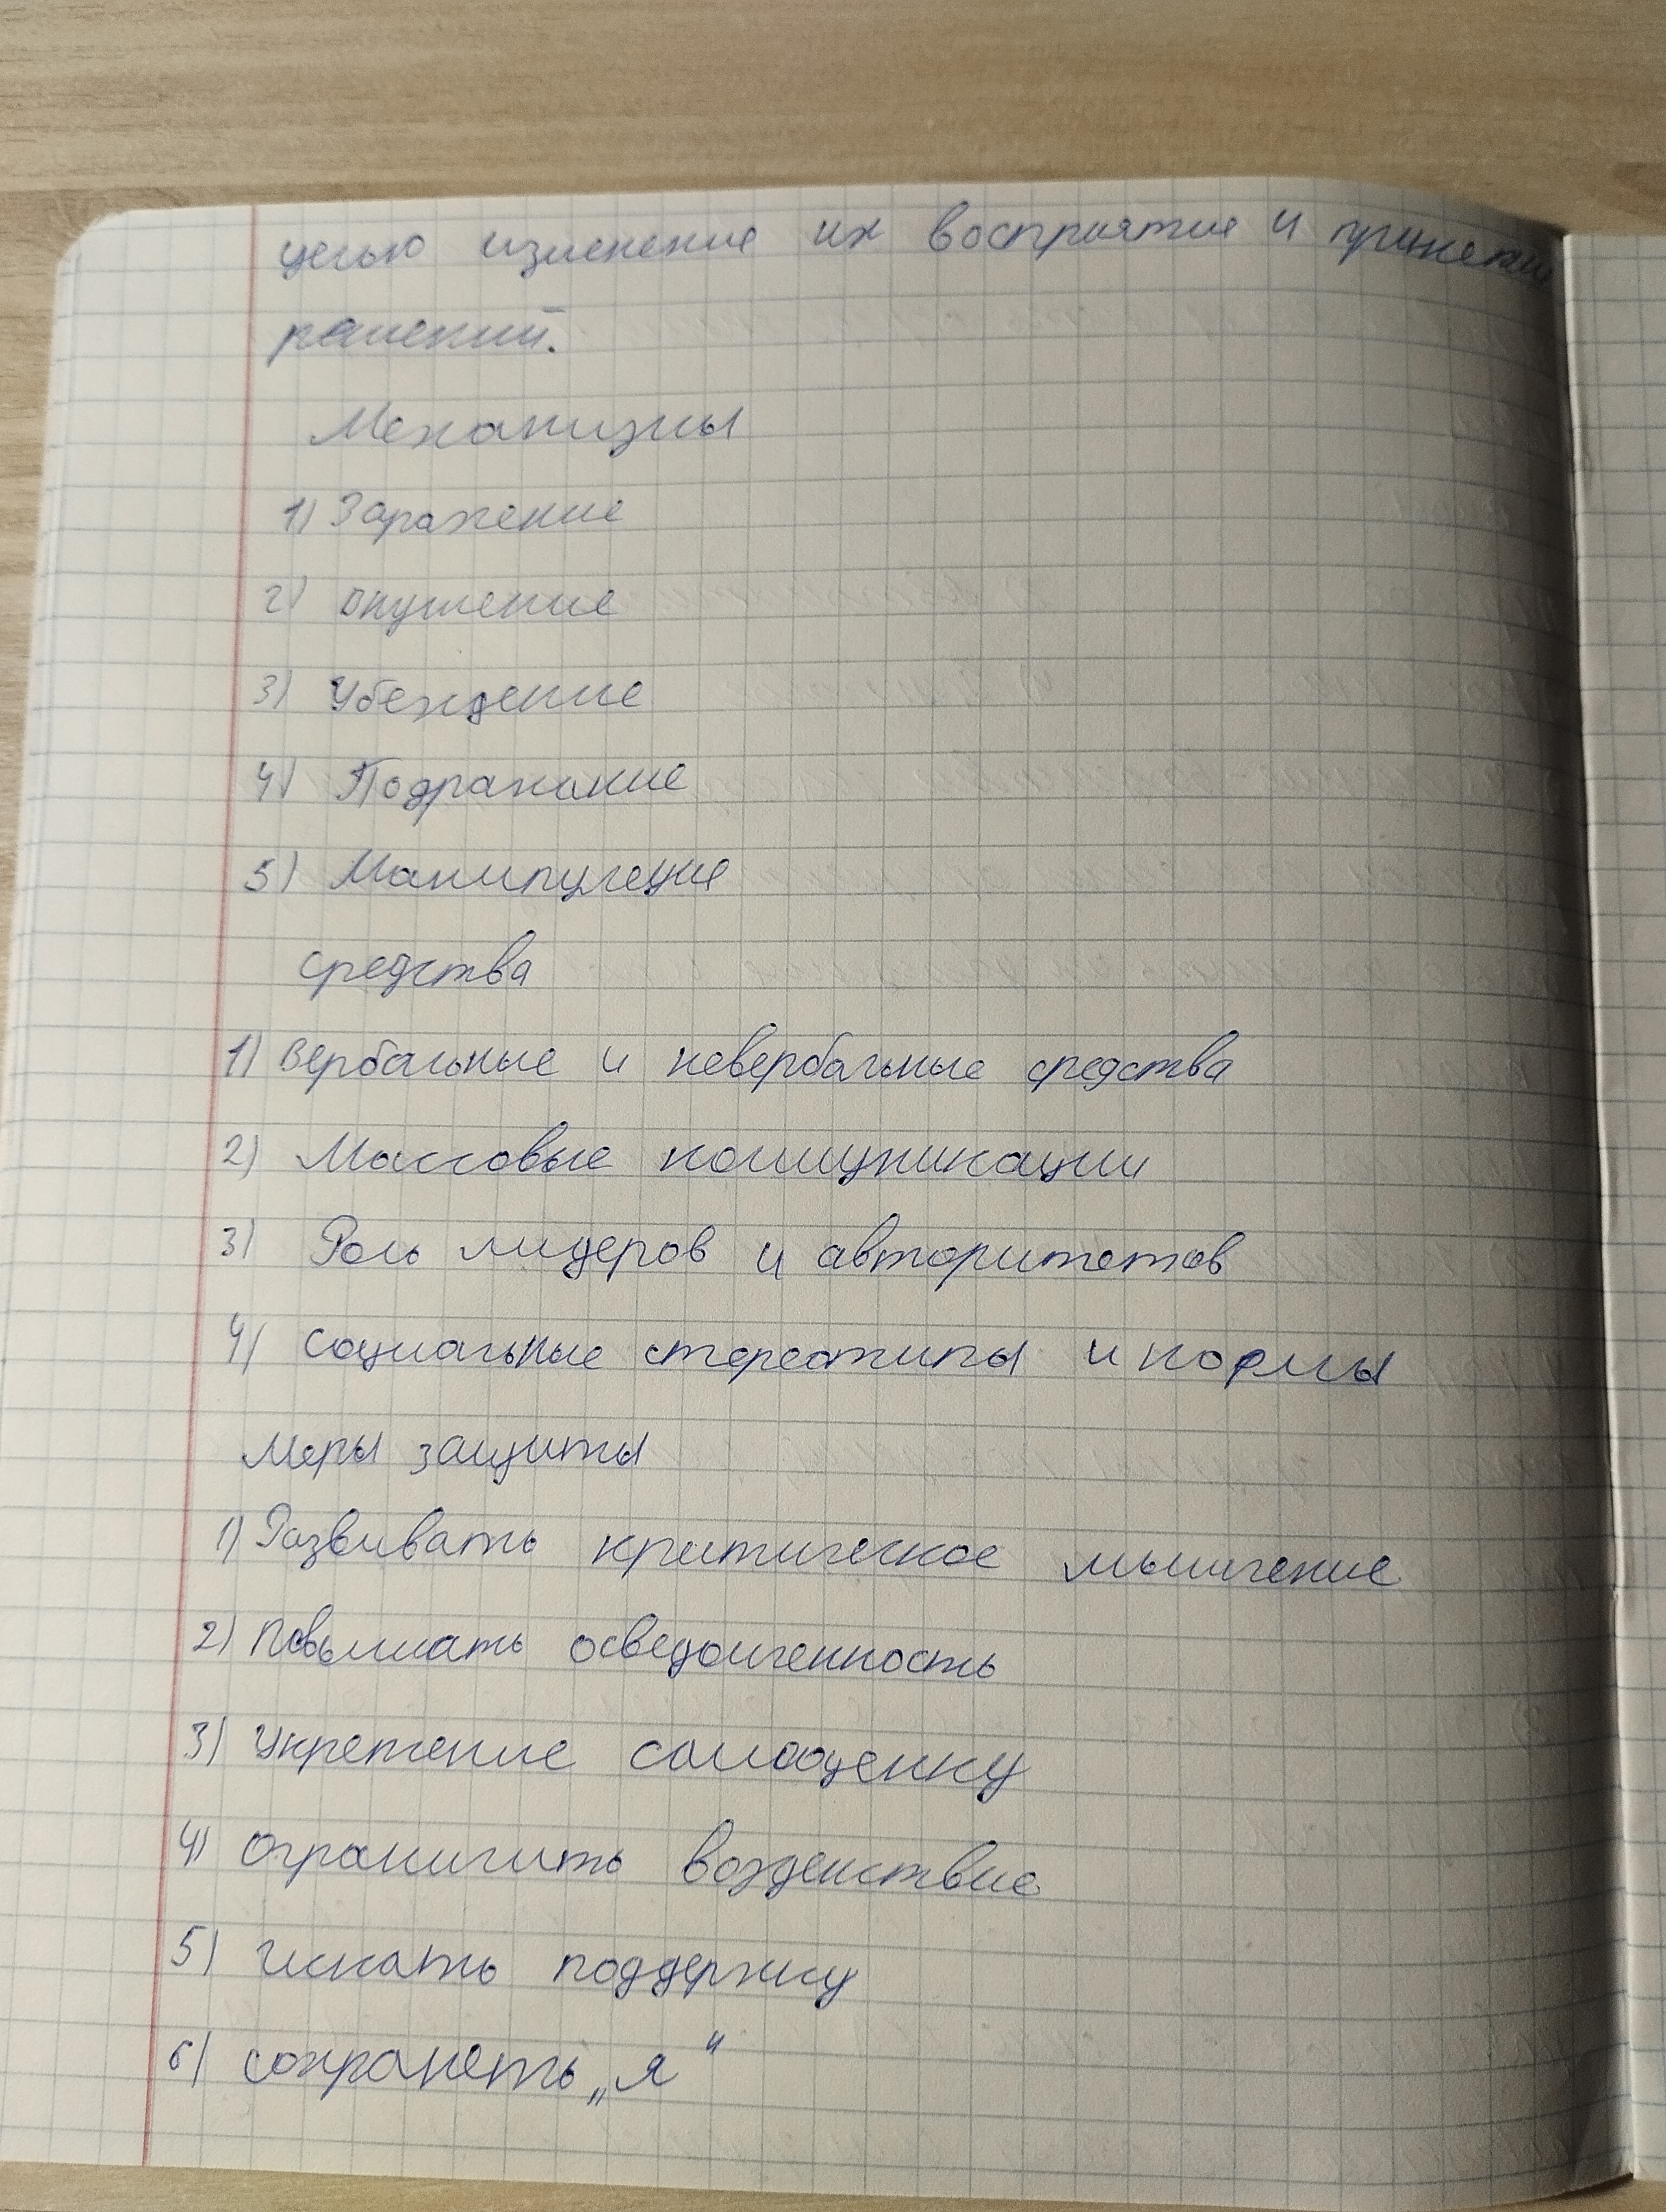 целью изменение их восприятие и принятии
решений.
Механизмы
1) Заражение
2) Внушение
3) Убеждение
4) Подражание
5) Манипуляция
средства
1) Вербальные и невербальные средства
2) Массовые коммуникации
3) Роль лидеров и авторитетов
4) Социальные стереотипы и нормы
Меры защиты
1) Развивать критическое мышление
2) Повышать осведомленность
3) Укрепление самооценку
4) Ограничить воздействие
5) Искать поддержку
6) сохранять „я“